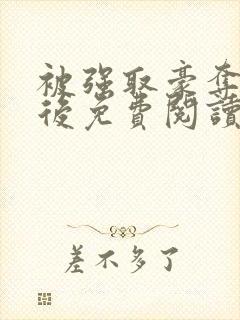 被強取豪奪
後免費閱讀
差不多了